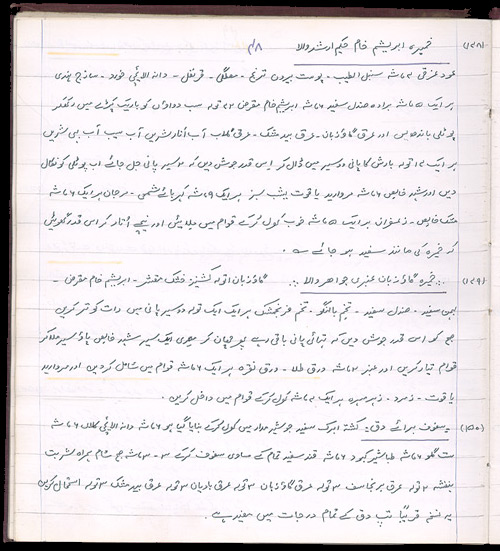 (۱۴۸) خمیرہ ابریشم خام حکیم ارشد والا ۴۸
عود غرقی ۴ ماشہ سنبل الطیب - پوست بیرون ترنج - مصطگی - قرنفل - دانہ الائچی خورد - ساذج ہندی
ہر ایک ۵ ماشہ برادہ صندل سفید ۶ ماشہ ابریشم خام مقرض ۲ تولہ سب دواؤں کو باریک کپڑے میں رکھکر
پوٹلی باندھیں اور عرق گاؤزبان - عرق بیدمشک - عرق گلاب آب انار شیریں آب سیب آب بہی شیریں
ہر ایک تولہ بارش کا پانی دو سیر میں ڈال کر اس قدر جوش دیں کہ ۲ سیر پانی جل جائے اب پوٹلی کو نکال
دیں اور شہد خالص ماشہ مروارید یاقوت یشب سبز ہر ایک ۹ ماشہ کہربائے شمعی - مرجان ہر ایک ۶ ماشہ
مشک خالص - زعفران ہر ایک ۵ ماشہ خوب کھرل کرکے قوام میں ملائیں اور نیچے اُتار کر اس قدر گھوٹیں
کہ خمیرہ کی مانند سفید ہو جائے
(۱۴۹) خمیرہ گاؤزبان عنبری جواھر والا گاؤزبان تولہ کشنیز خشک مقشر - ابریشم خام مقرض -
بہمن سفید - صندل سفید - تخم بالنگو - تخم فرنجمشک ہر ایک ایک تولہ دو سیر پانی میں رات کو تر کریں
صبح کو اس قدر جوش دیں کہ تہائی پانی باقی رہے پھر چھان کر مصری ایک سیر شہد خالص پاؤ سیر ملا کر
قوام تیار کریں اور عنبر ۴ ماشہ ورق طلا - ورق نقرہ ہر ایک ۶ ماشہ قوام میں شامل کر دیں اور مروارید
یاقوت - زمرد - زہر مہرہ ہر ایک ۴ ماشہ کھرل کرکے قوام میں داخل کریں -
(۱۵۰) سفوف برائے دق کشتہ ابرک سفید جو شیر مدار میں کھرل کرکے بنایا گیا ہو ۶ ماشہ دانہ الائچی کلاں ۶ ماشہ
ست گلو ۶ ماشہ طباشیر کبود ۶ ماشہ قند سفید تمام کے مساوی سفوف کرکے ۳ - ۳ ماشہ صبح شام ہمراہ شربت
بنفشہ ۲ تولہ عرق برنجاسف ۳ تولہ عرق گاؤزبان ۳ تولہ عرق بادیان ۳ تولہ عرق بیدمشک ۳ تولہ استعمال کریں
یہ نسخہ قریباً تپ دق کے تمام درجات میں مفید ہے -